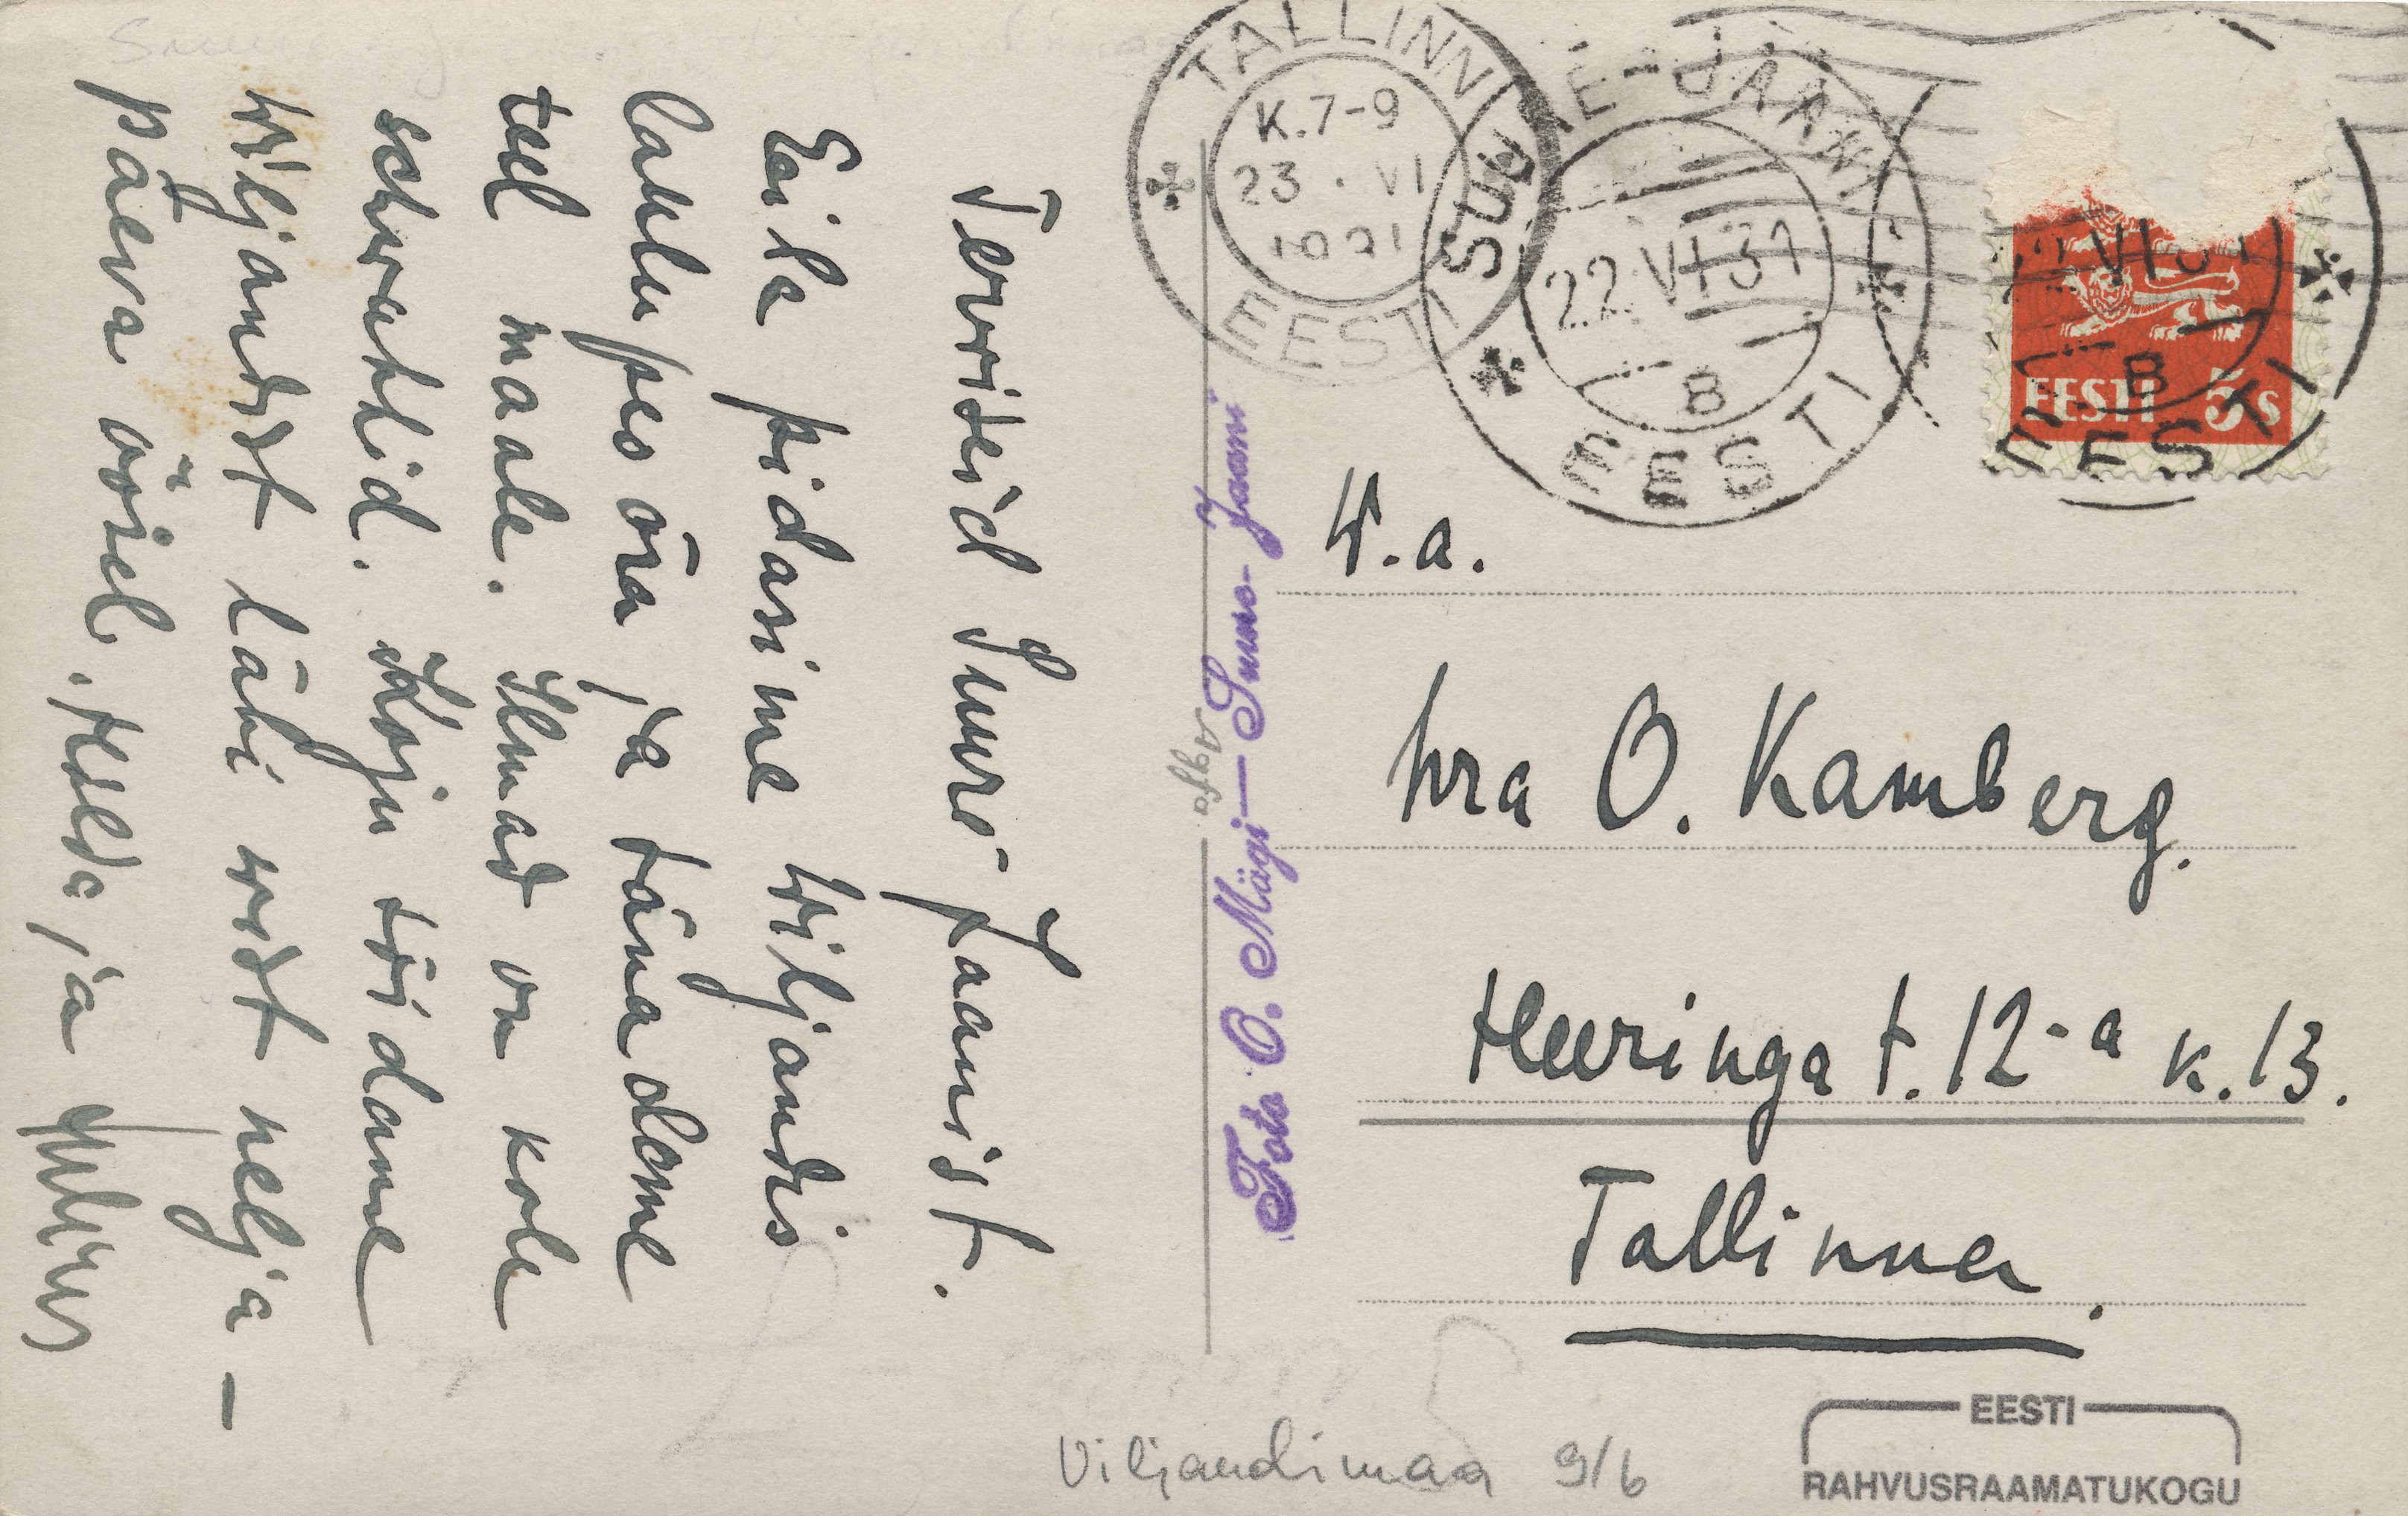 TALLINN
K. 7-9
23 · VI
1931
EESTI
SUURE-JAANI
22.VI 31
B
EESTI
VI 31
B
EESTI
EESTI 5s
Tervisid Suure Jaanist.
Eila pidasime Wiljandis
laulupeo ära ja täna oleme
teel maale. Ilmad on kole
Koju sõidame
Wiljandist läbi vist nelja-
päeva öösel. Helda ja
Foto O. Mägi — Suure-Jaani
Agfa
W. a.
hra O. Kamberg.
Heeringa t. 12-a k. 13.
Tallinna.
Viljandimaa 9/6
EESTI
RAHVUSRAAMATUKOGU